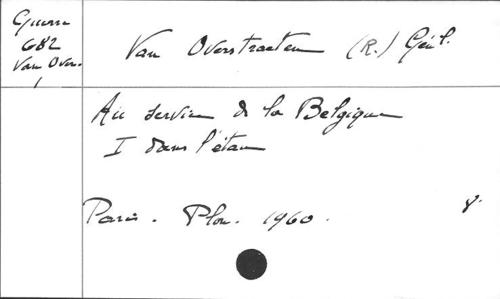 Guerre
682
Van Over.
1
Van Overstraeten (R.) Gén'l.
Au service de la Belgique
I dans l'étau
Paris. Plon. 1960. 8°